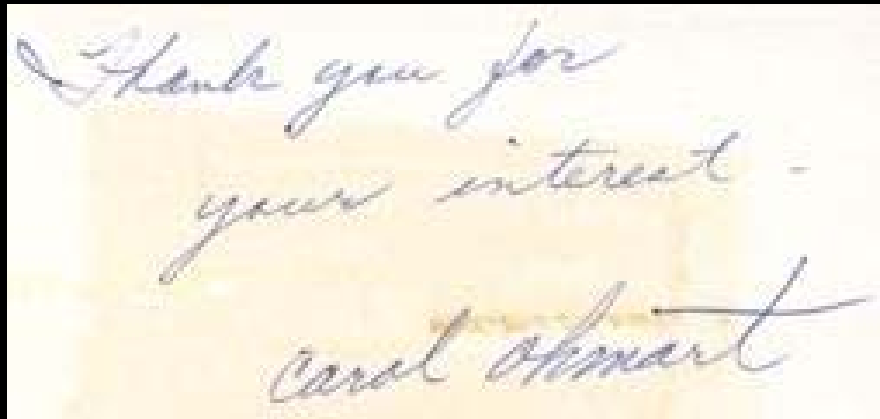 Thank you for
your interest -
carol ohmart